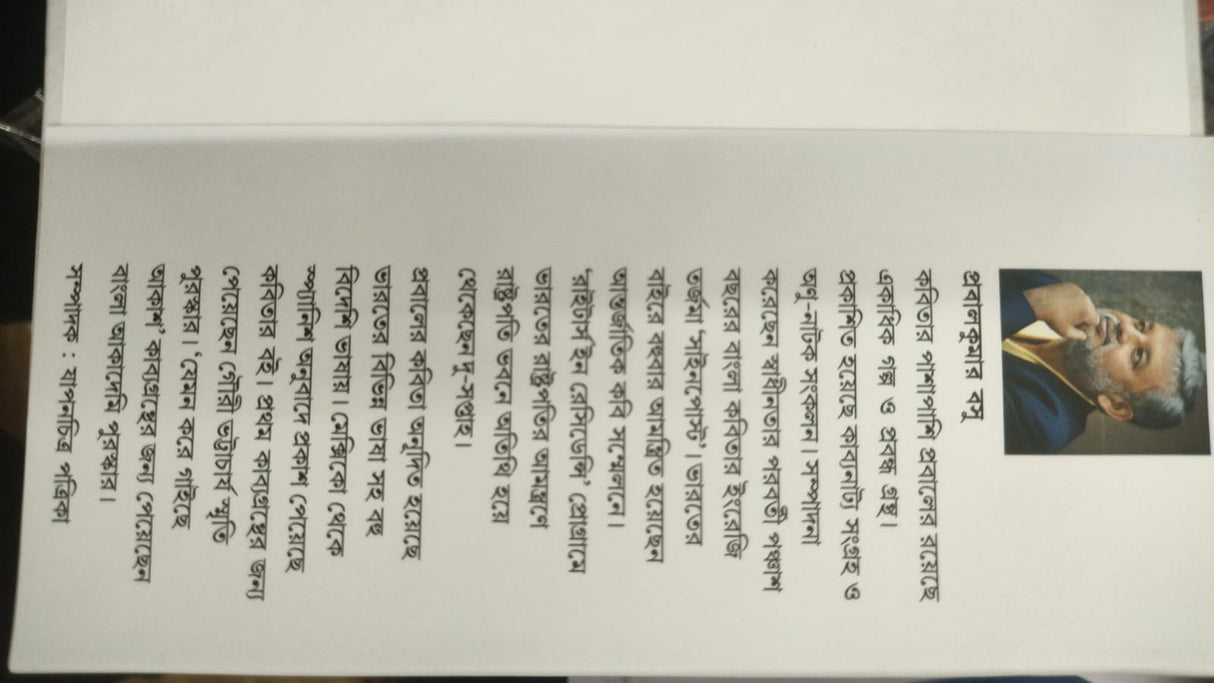 প্রবালকুমার বসু
কবিতার পাশাপাশি প্রবালের রয়েছে
একাধিক গল্প ও প্রবন্ধ গ্রন্থ।
প্রকাশিত হয়েছে কাব্যনাট্য সংগ্রহ ও
অনু-নাটক সংকলন। সম্পাদনা
করেছেন স্বাধীনতার পরবর্তী পঞ্চাশ
বছরের বাংলা কবিতার ইংরেজি
তর্জমা 'সাইনপোস্ট'। ভারতের
বাইরে বহুবার আমন্ত্রিত হয়েছেন
আন্তর্জাতিক কবি সম্মেলনে।
'রাইটার্স ইন রেসিডেন্সি' প্রোগ্রামে
ভারতের রাষ্ট্রপতির আমন্ত্রণে
রাষ্ট্রপতি ভবনে অতিথি হয়ে
থেকেছেন দু-সপ্তাহ।
প্রবালের কবিতা অনূদিত হয়েছে
ভারতের বিভিন্ন ভাষা সহ বহু
বিদেশি ভাষায়। মেক্সিকো থেকে
স্প্যানিশ অনুবাদে প্রকাশ পেয়েছে
কবিতার বই। প্রথম কাব্যগ্রন্থের জন্য
পেয়েছেন গৌরী ভট্টাচার্য স্মৃতি
পুরস্কার। 'যেমন করে গাইছে
আকাশ' কাব্যগ্রন্থের জন্য পেয়েছেন
বাংলা আকাদেমি পুরস্কার।
সম্পাদক : যাপনচিত্র পত্রিকা